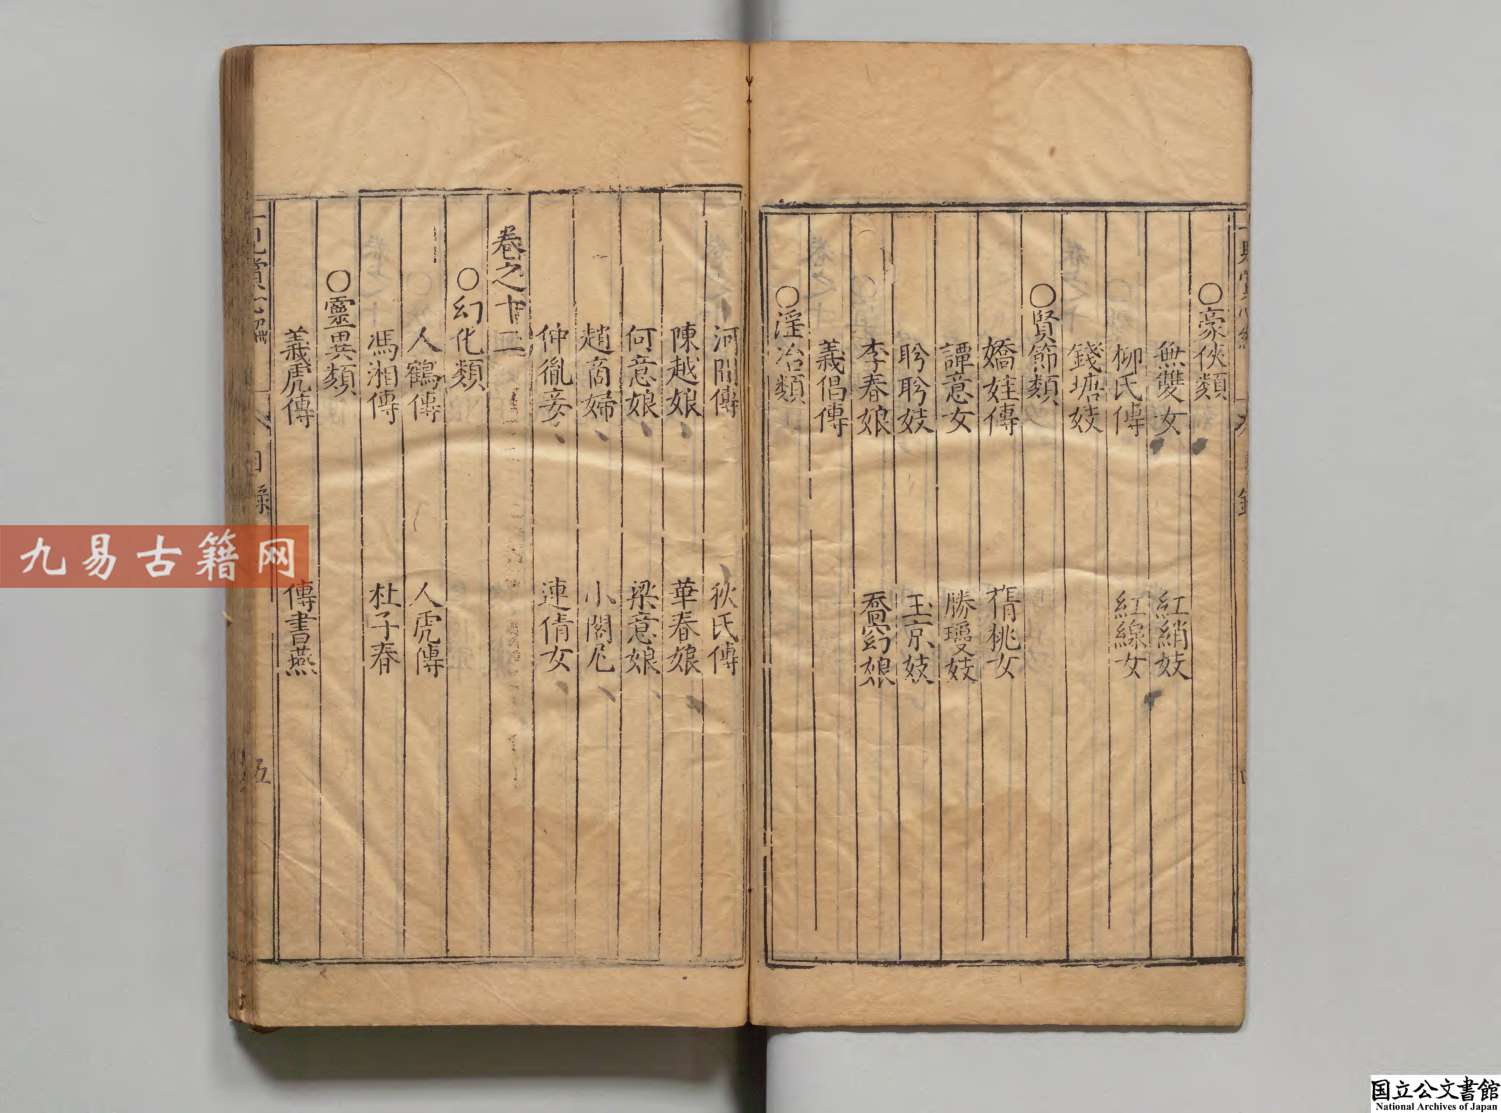 ○豪俠類
無雙女 紅綃妓
柳氏傳 紅線女
錢塘妓
○賢節類
嬌娃傳 惰桃女
譚意女 勝瓊妓
盻盻妓 玉京妓
李春娘
義倡傳
○淫冶類
河間傳 狄氏傳
陳越娘 華春娘
何意娘 梁意娘
趙商婦 小閤尼
仲胤妾 連倩女
卷之十二
○幻化類
人鶴傳 人虎傳
馮湘傳 杜子春
○靈異類
義虎傳 傳書燕
五
九易古籍网
国立公文書館
National Archives of Japan